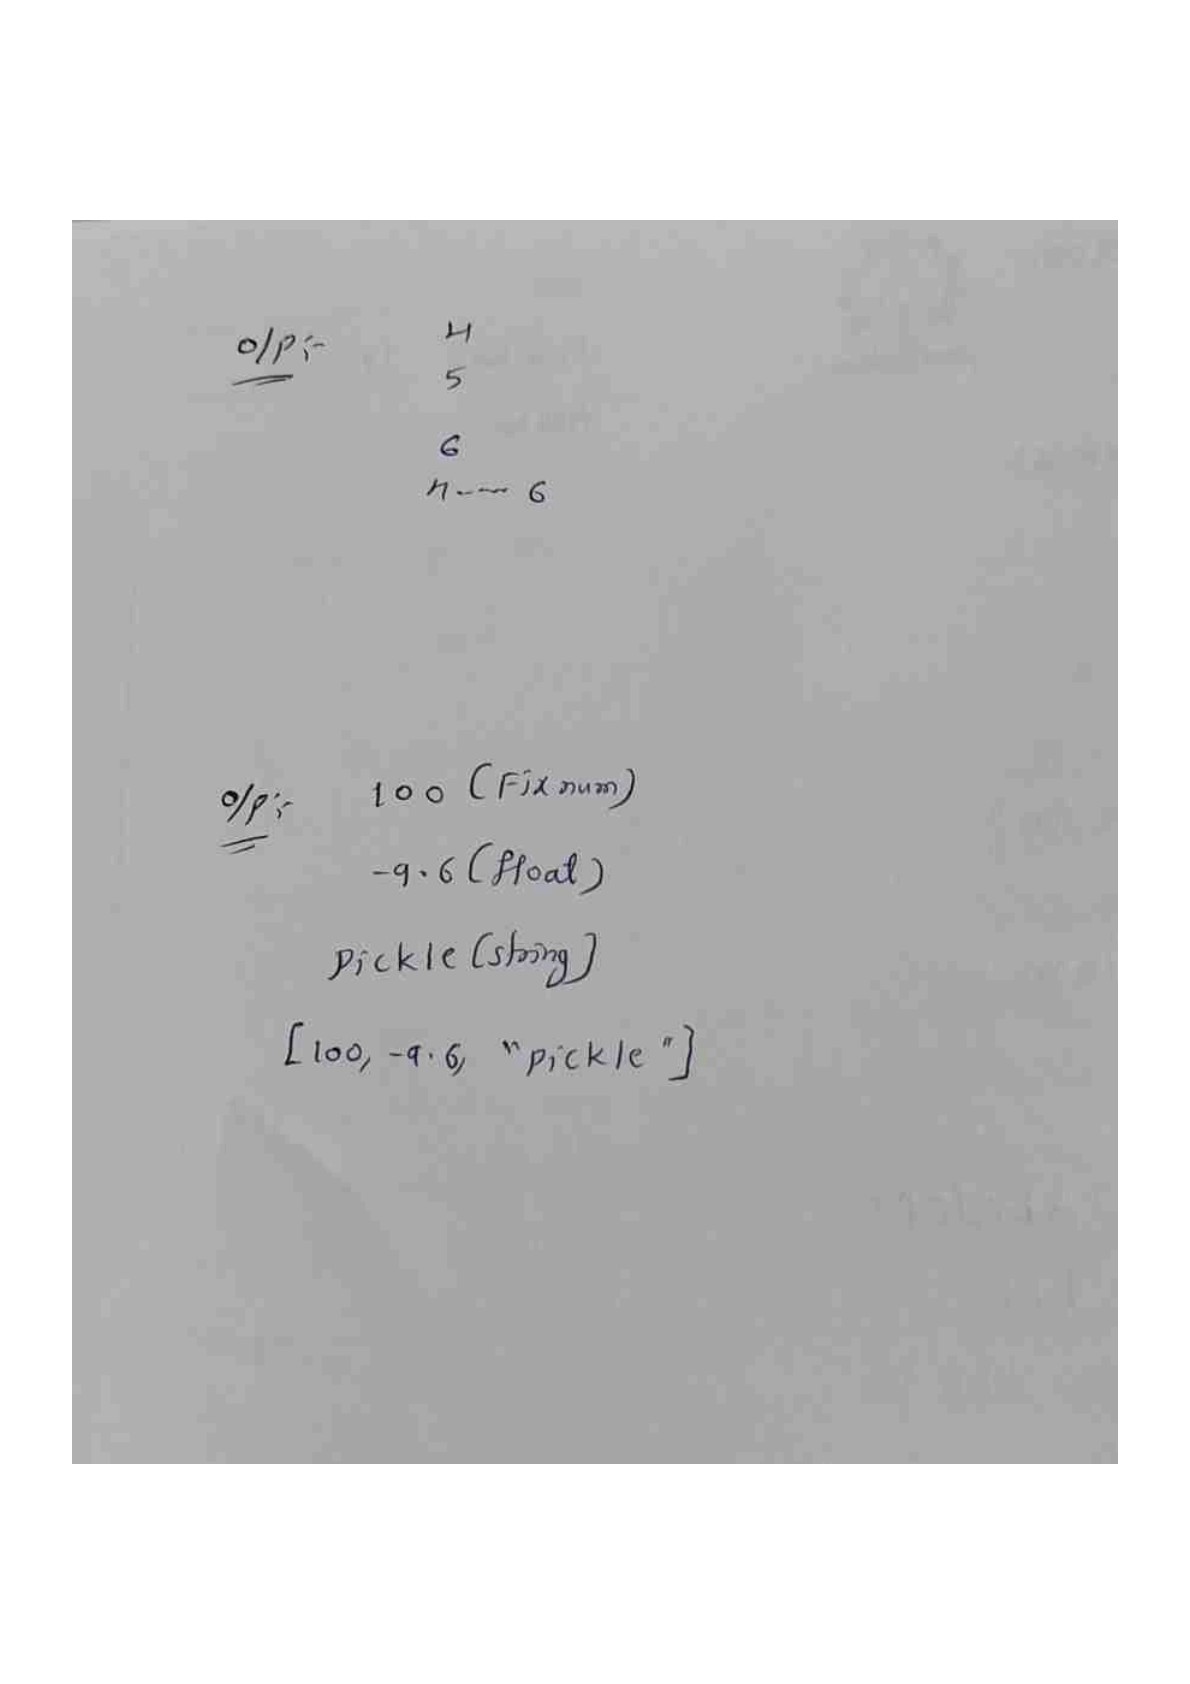 o/p:-   4
5
6
n---- 6
o/p:-   100 (Fixnum)
-9.6 (float)
Pickle (string)
[100, -9.6, "pickle"]